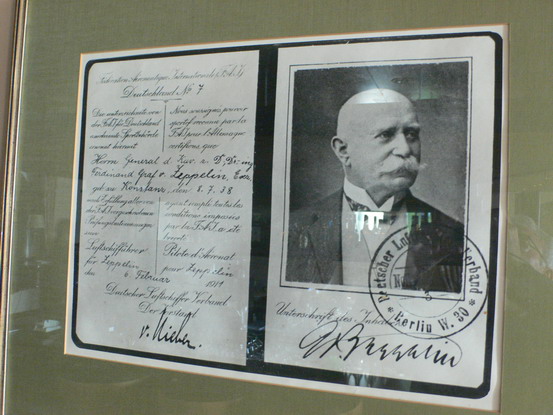 Fédération Aéronautique Internationale (F.A.I.)
Deutschland No 7
Die unterzeichnete von
der F.A.I. für Deutschland
anerkannte Sportbehörde
ernennt hiermit
Herrn General d. Kav. z. D. Dr. Ing.
Ferdinand Graf v. Zeppelin, Exz.
geb. zu Konstanz den 8. 7. 38
nach Erfüllung aller von
der F.A.I. vorgeschriebenen
zum
Luftschifführer
für Zeppelin
den 6. Februar
Nous soussignés pouvoir
sportif reconnu par la
F.A.I. pour l'Allemagne
certifions que
ayant rempli toutes les
conditions imposées
par la F.A.I. a été
breveté
Pilote d'Aéronat
pour Zeppelin
191
Deutscher Luftschiffer Verband
Der Vorstand
v. Nieber.
Deutscher Verband
Berlin W. 30
Unterschrift des Inhabers
Gf. v. Zeppelin